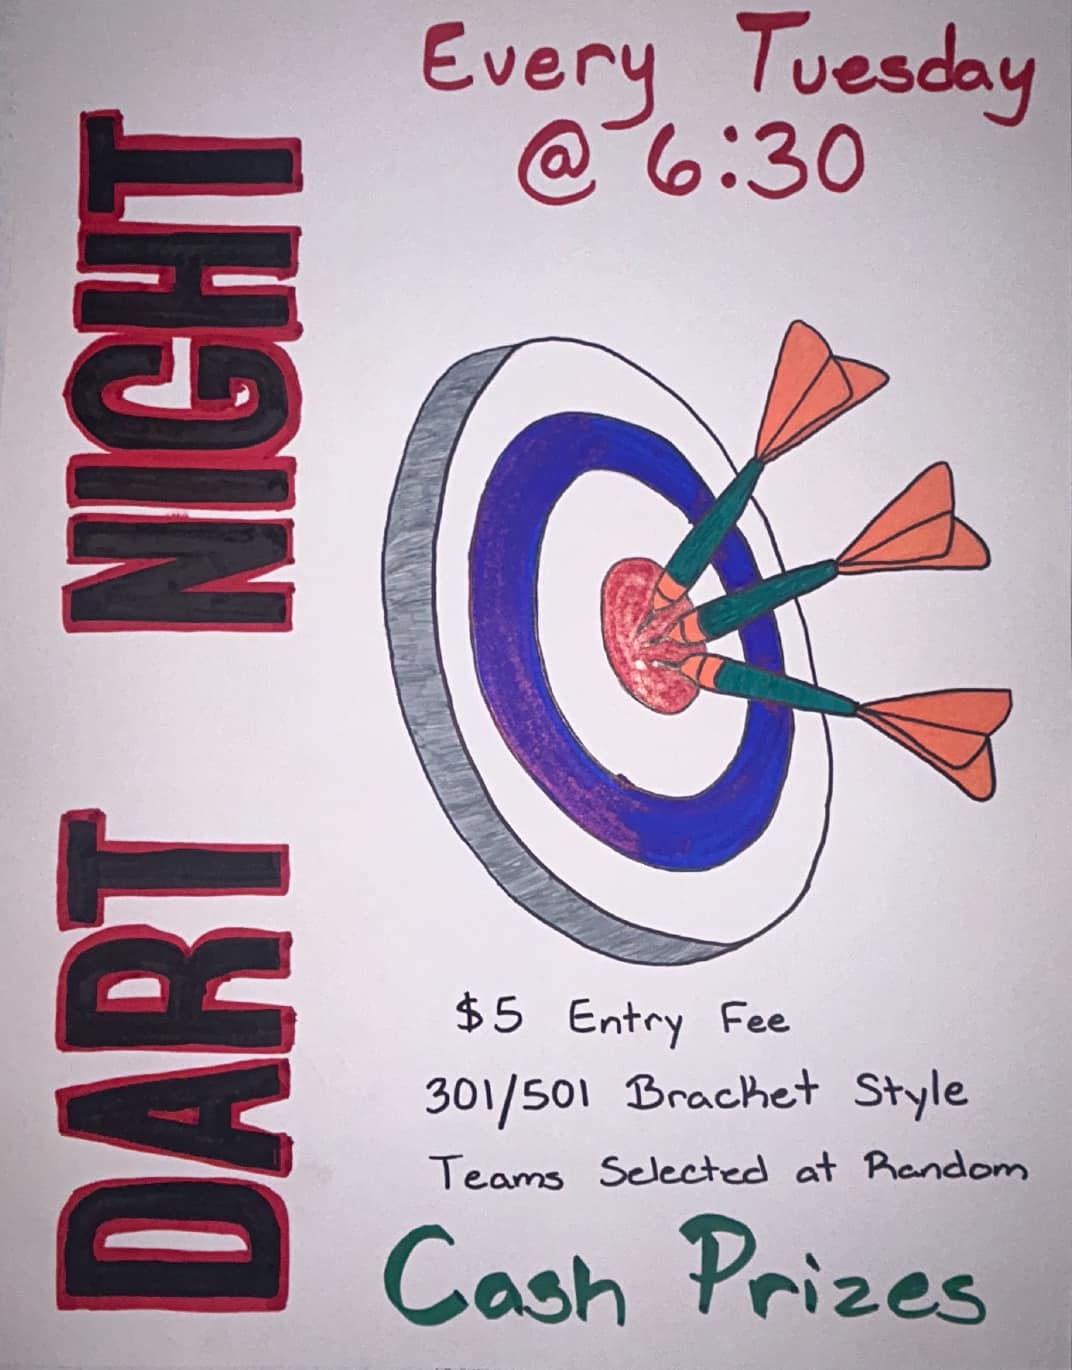 DART NIGHT
Every Tuesday
@ 6:30
$5 Entry Fee
301/501 Bracket Style
Teams Selected at Random
Cash Prizes